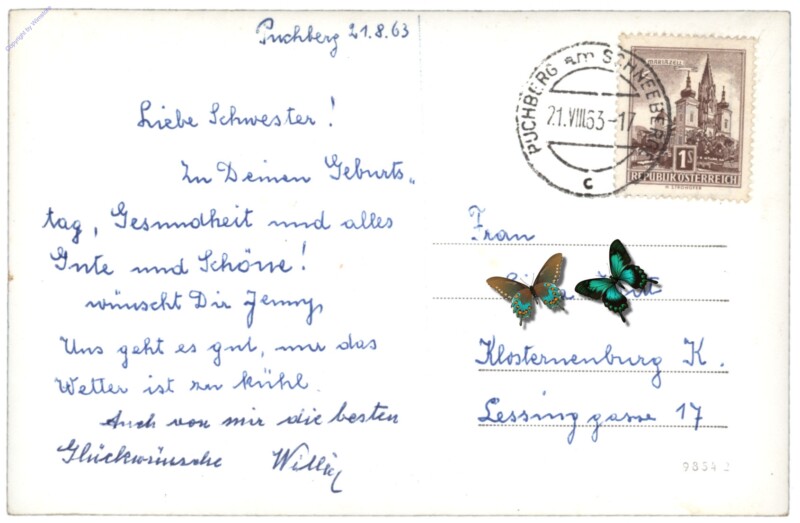 Copyright by Wanetka
Puchberg 21.8.63
Liebe Schwester!
Zu Deinen Geburts„
tag, Gesundheit und alles
Gute und Schöne!
wünscht Dir Jenny,
Uns geht es gut, nur das
Wetter ist zu kühl.
Auch von mir die besten
Glückwünsche
PUCHBERG am SCHNEEBERG
21.VIII.63-17
c
MARIAZELL
1S
REPUBLIK ÖSTERREICH
Frau
Klosterneuburg K.
Lessinggasse 17
9854 2